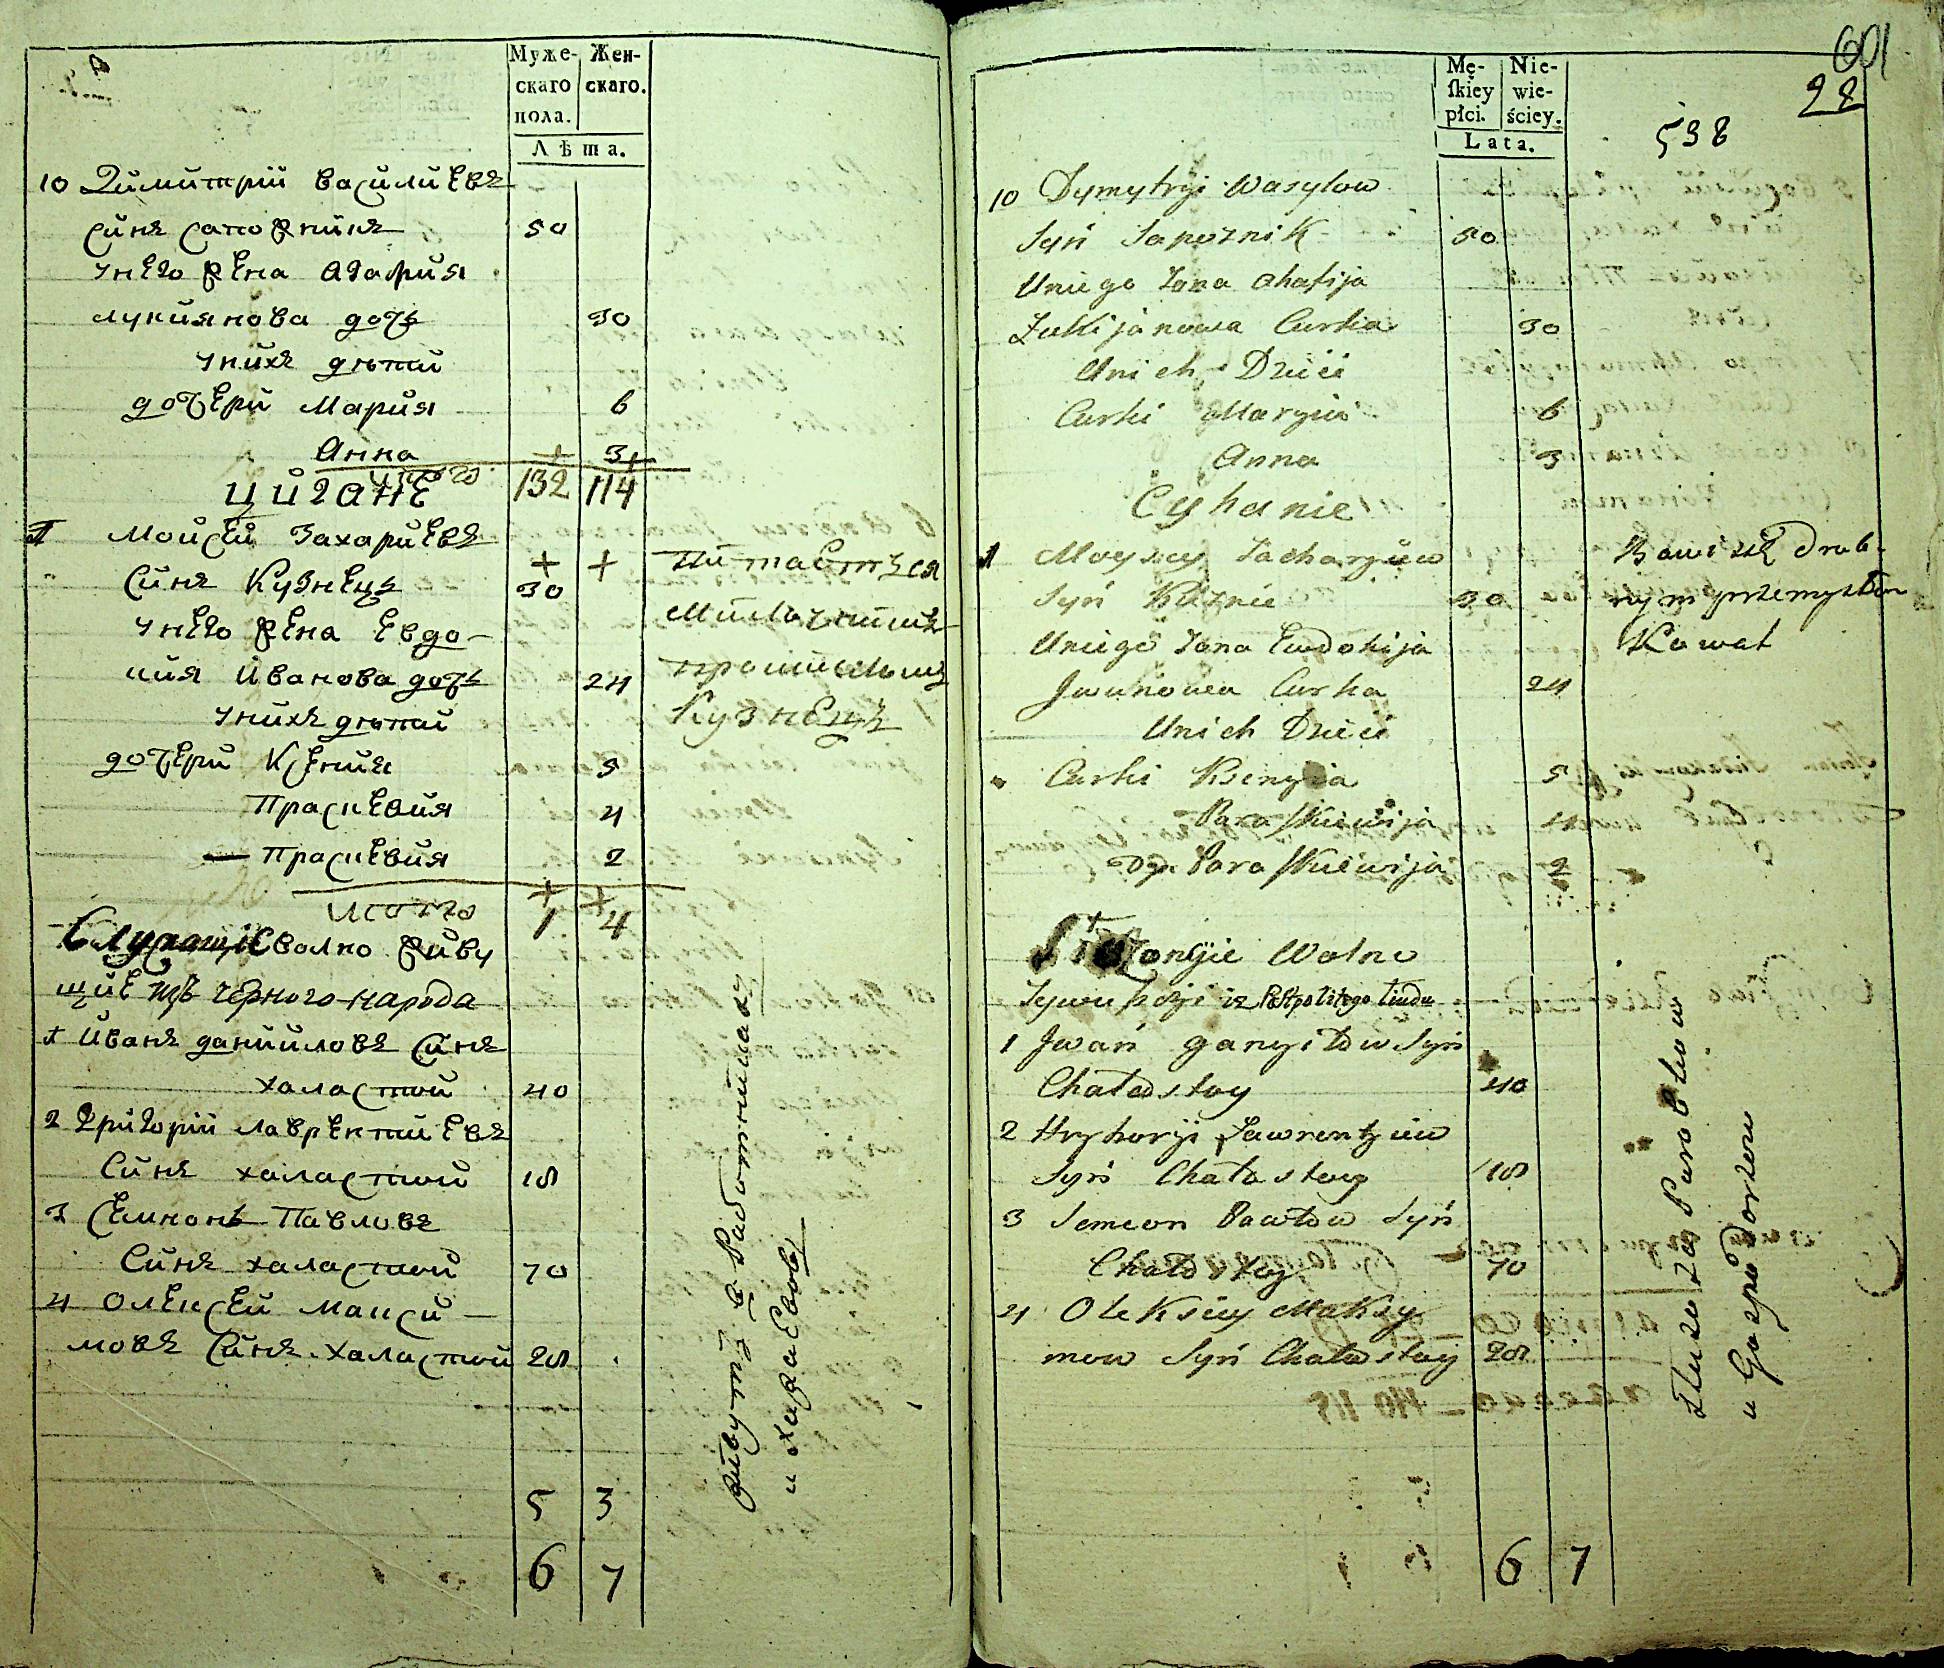 Муже- Жен-
скаго скаго.
пола.
Лѣта.
10 Димитрий Василиевъ
синъ сапожникъ 50
У него жена Агафия
Лукиянова дочь 30
У нихъ дѣтий
дочери Мария 6
Анна 3
итого 132 114
Цигане
1 Мойсей Захариевъ
Синъ Кузнецъ 30
У него жена Евдо-
кия Иванова дочь 24
У нихъ дѣтий
дочери Ксения 5
Праскевия 4
Праскевия 2
итого 1 4
Служащие волно живу
щие изъ черного народа
1 Иванъ даниловъ Синъ
халастой 40
2 Григорий Лаврентиевъ
Синъ халастой 18
3 Семионъ Павловъ
Синъ халастой 70
4 Олексей Макси-
мовъ Синъ халастой 28
5 3
6 7
Питается
Мѣлочнимъ
промисломъ
Кузнецъ
живутъ в Работникахъ
601
28
538
Mę- Nie-
ſkiey wie-
płci. ściey.
Lata.
10 Dymytryi Wasylow
Syń Sapoznik 50
Uniego Zona Ahafija
Łukijanowa Curka 30
Unich Dzieci
Curki Maryia 6
Anna 3
Cyhanie
1 Moysey Zacharyiew
Syń Kuznie 30
Uniego Zona Ewdokija
Jwanowa Curka 24
Unich Dzieci
Curki Ksenyia 5
Paraskiewija 4
Paraskiewija 2
Wolno
Zywuszczyi iz Postpolitego Liudu
1 Jwań Danyiłow Syń
Chałastoy 40
2 Hryhoryi Ławrentyiew
Syń Chałastoy 18
3 Semeon Pawłow Syń
Chałastoy 70
4 Oleksiey Maksy
mow Syń Chałastoy 28
6 7
Bawi się drob-
nym przemysłem
Kowal
Służą za Parobkow
u Gospodorzow